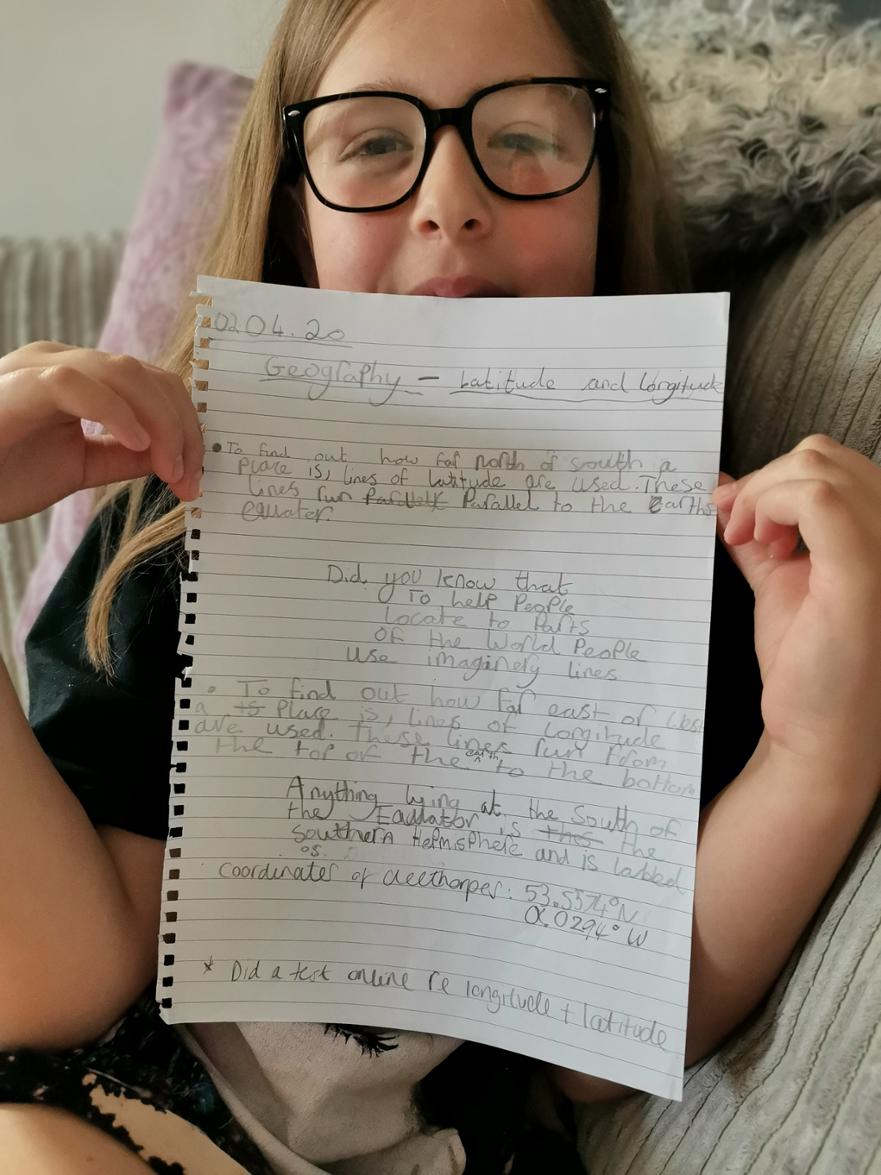 02.04.20
Geography - Latitude and longitude
• To find out how far north of south a
Place is, lines of latitude are used. These
lines run Parallel to the Earths
equator.
Did you know that
To help People
Locate to Parts
Of the World People
use imaginery lines
• To find out how far east of
a Place is, lines of longitude
are used. These lines run from
the top of the earth to the bottom
Anything lying at the South of
the Equator is the
Southern Hemisphere and is
os.
Coordinates of Cleethorpes: 53.5574°N
0.0294°W
* Did a test online re longitude + latitude